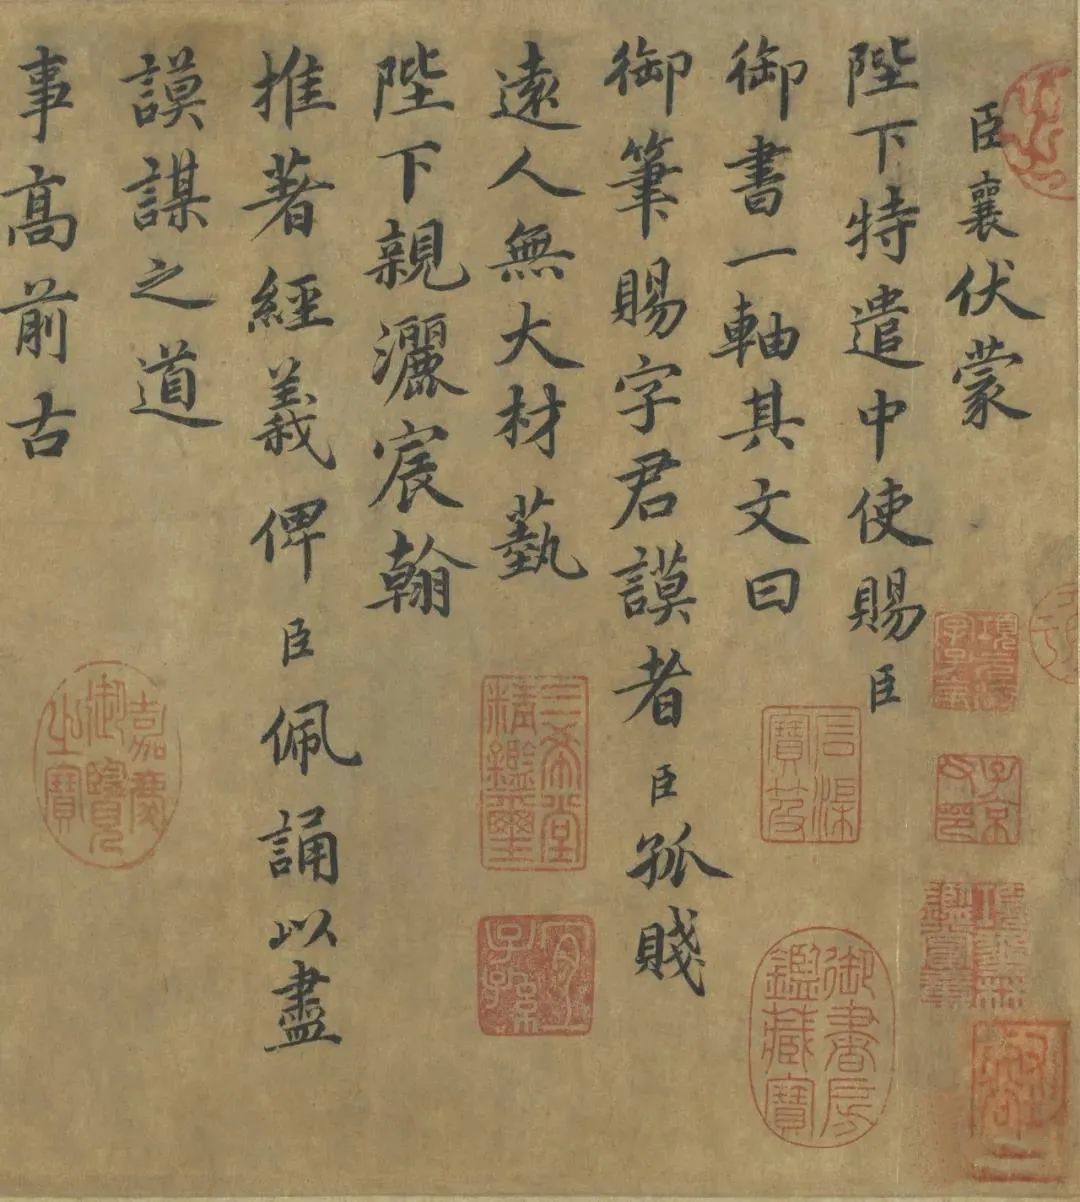 臣襄伏蒙
陛下特遣中使賜臣
御書一軸其文曰
御筆賜字君謨者臣孤賤
遠人無大材藝
陛下親灑宸翰
推著經義俾臣佩誦以盡
謨謀之道
事高前古
石渠寶笈
御書房鑑藏寶
三希堂精鑑璽
宜子孫
嘉慶御覽之寶